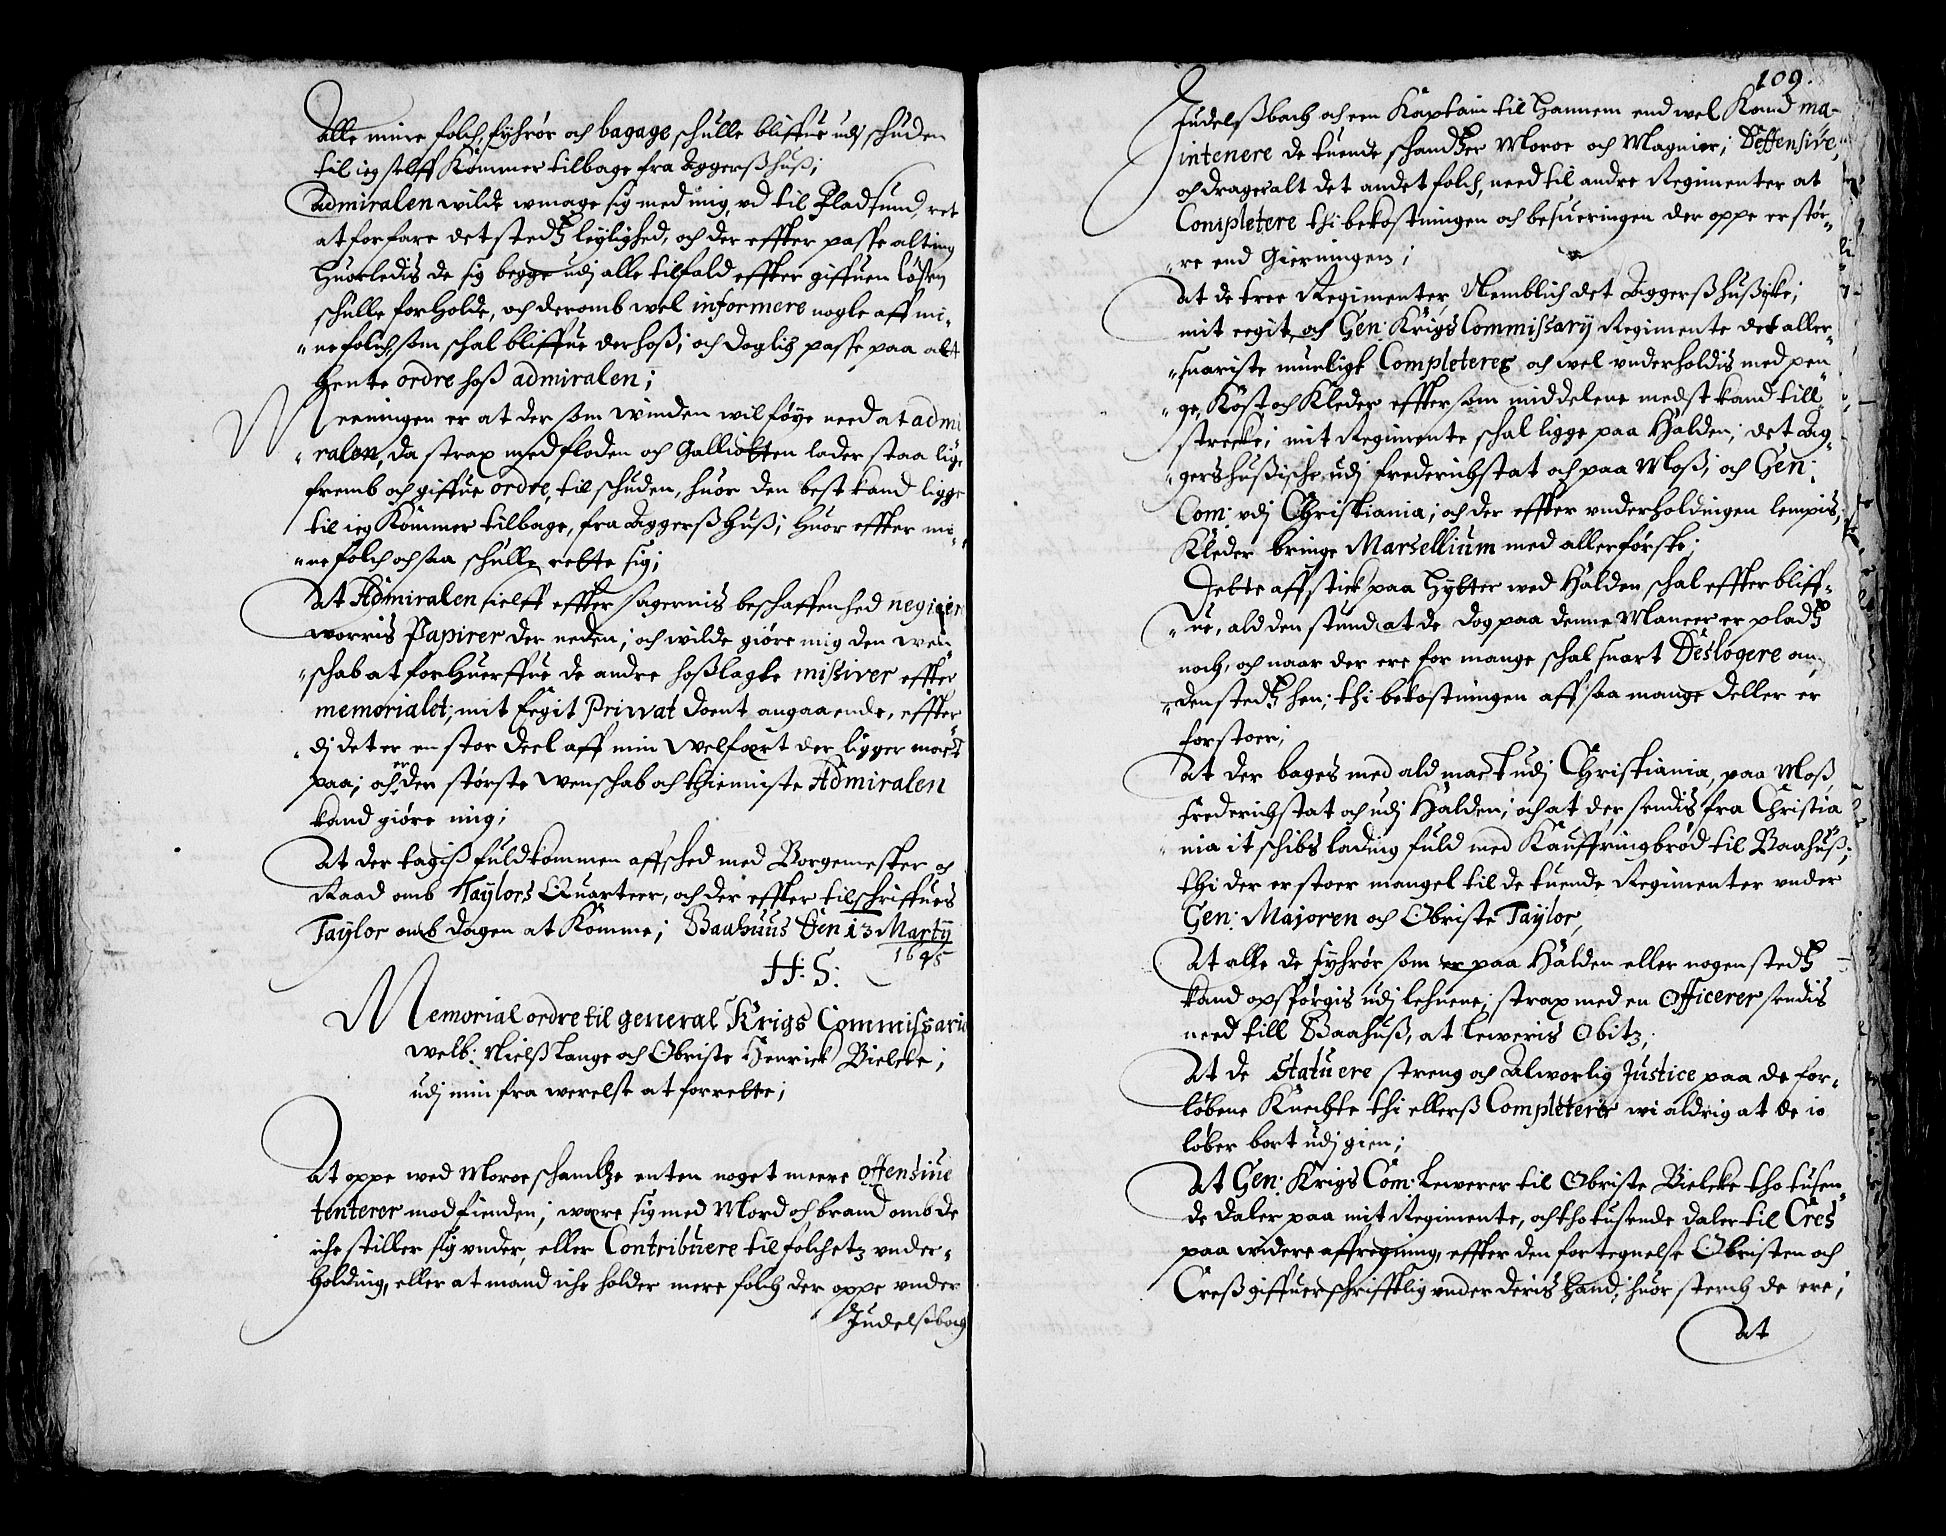 Alle mine folch, fyhrör och bagage, schulle bliffue udj schuden
til ieg selff Kommer tilbage fra Aggerßhuß;
Admiralen wilde wmage sig med mig, vd til Fladsund, ret
at forfare det stedtz leylighed, och der effter passe alting
Huorledis de sig begge udj alle tilfald effter giffuen lösen
schulle forholde, och deromb wel informere nogle aff mi-
ne folch, som schal bliffue derhoß; och daglig passe paa alt
Hente ordre hoß admiralen;
Meeningen er at der som winden wil föye need at admi
ralen, da strax med floden och Galliotten lader staa lige
fremb och giffue ordre, til schuden, huor den best kand ligge
til ieg Kommer tilbage, fra Aggerßhuß; huor effter mi-
ne folch ochsaa schulle rette sig;
At Admiralen sielff effter sagernis beschaffenhed
worris Papirer der neden; och wilde giöre mig den wen
schab at forhuerffue de andre hoßlagte missiver effter
memorialet; mit Eegit Priwat doent angaaende, effter
dj det er en stor deel aff min welfaert der ligger mact
paa; och er den störste wenschab och thienniste Admiralen
kand giöre mig;
At der tagiß fuldkommen affsched med Borgemester och
Raad omb Taylors Quarteer, och der effter tilschriffues
Taylor omb dagen at Komme; Baahuus Den 13 Martij
1645
H: S:
Memorial ordre til general Krigs Commissario
welb: Nielß Lange och Obriste Henrick Bielcke;
udj min fra werelse at forrette;
At oppe wed Moroe schantze enten noget meere offensiue
tenterer mod fienden; waere sig med Mord och brand omb de
iche stiller sig vnder, eller Contribuere til folchetz vnder-
holding, eller at mand iche holder mere folch der oppe vnder
Judelßbach
109.
Judelßbach och een Kaptain til Hannem end wel Kand ma-
intenere de tuende schandtzer Moroe och Magnior; Deffensive,
och drager alt det andet folch, need til andre Regimenter at
Completere thi bekostningen och besueringen der oppe er stör-
re end Gierningen;
At de tree Regimenter Nemblich det Aggerßhußiske;
mit eegit och Gen: Krigs Commissarij Regimente det aller
snariste mueligt Completeres och wel vnderholdis med pen
ge, Kost och Kleder effter som middelene medst kand till
strecke; mit Regimente schal ligge paa Halden; det Ag-
gershußische udj frederichstat och paa Moß; och Gen:
Com: vdj Christiania; och der effter vnderholdingen lempis,
Kleder bringe Marsellium med allerförste;
Dette affstick paa Hytter wed Halden schal effter bliff-
ue, ald den stund at de dog paa denne Maneer er pladtz
noch, och naar der ere for mange schal snart Deslogere an
den stedtz hen; thi bekostningen aff saa mange deller er
forstoer;
At der bages med ald mact udj Christiania, paa Moß
frederichstat och udj Halden; och at der sendis fra Christia
nia it schibs lading fuld med Kauffringbröd til Baahuß;
thi der er stoer mangel til de tuende Regimenter vnder
Gen: Majoren och Obriste Taylor,
At alle de fyhrör som er paa Halden eller nogen stedtz
kand opspörgis udj lehnene; strax med en Officerer sendis
need till Baahuß, at leweris Obitz;
At de Statuere streng och Alworlig Justice paa de for-
löbene Knechte thi ellerß Completere wi aldrig at de io
löber bort udj gien;
At Gen: Krigs Com: Lewerer til Obriste Bielcke tho tusen
de daler paa mit Regimente, och tho tusende daler til Cres
paa widere affregning, effter den fortegnelse Obristen och
Creß giffuer schrifftlig vnder deris hand; huor sterch de ere;
At